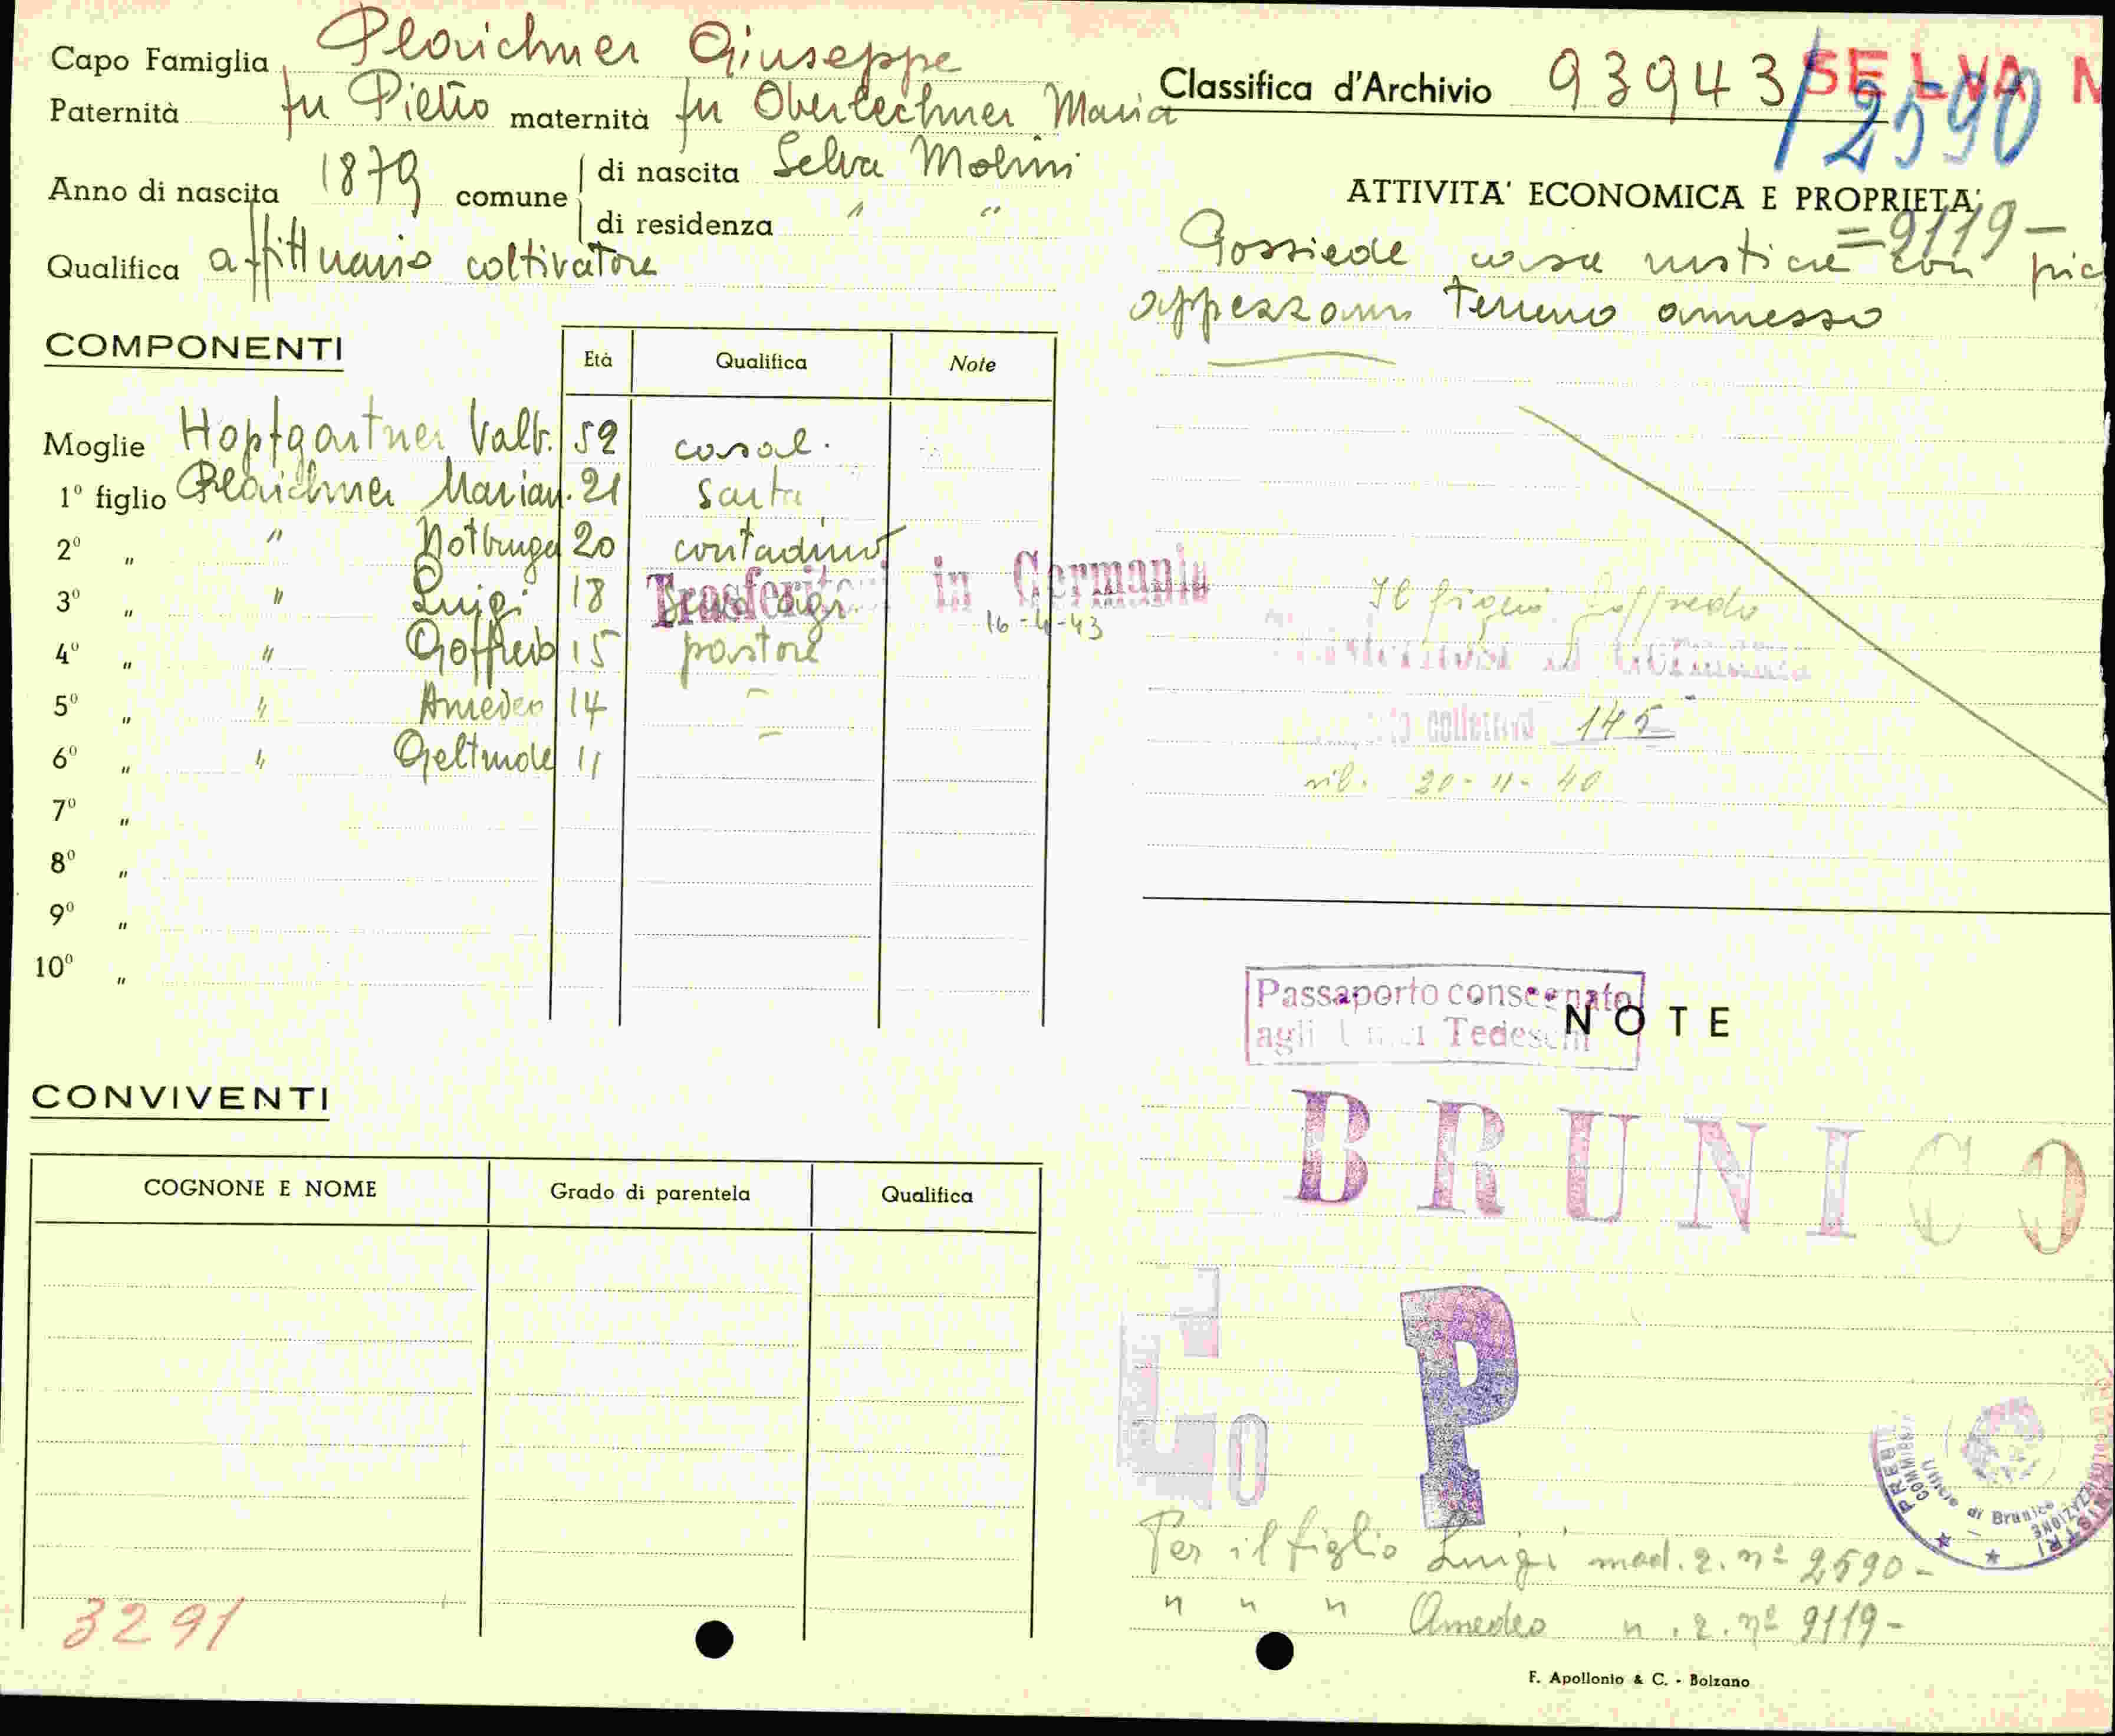 Capo Famiglia Plaichner Giuseppe
Paternità fu Pietro maternità fu Oberlechner Maria
Anno di nascita 1879 comune di nascita Selva Molini
di residenza " "
Qualifica affittuario coltivatore
COMPONENTI
Età Qualifica Note
Moglie Hopfgartner Valb. 52 casal.
1º figlio Plaichner Marian. 21 sarta
2º " " Notburga 20 contadino
3º " " Luigi 18 agr.
Trasferito in Germania
16-4-43
4º " " Goffredo 15 pastore
5º " " Amedeo 14 -
6º " " Geltrude 11 -
7º "
8º "
9º "
10º "
CONVIVENTI
COGNONE E NOME Grado di parentela Qualifica
3291
Classifica d'Archivio 93943/2590
SELVA M
ATTIVITA' ECONOMICA E PROPRIETA'
=9119-
Possiede casa rustica con pic
appezzam terreno annesso
Il figlio Goffredo
in Germania
145
ril. 20-11-40
Passaporto consegnato
agli Uffici Tedeschi
NOTE
BRUNICO
P
PREFETTURA
di Brunico
Per il figlio Luigi mod. 2. nº 2590-
" " " Amedeo " . 2. nº 9119-
F. Apollonio & C. - Bolzano